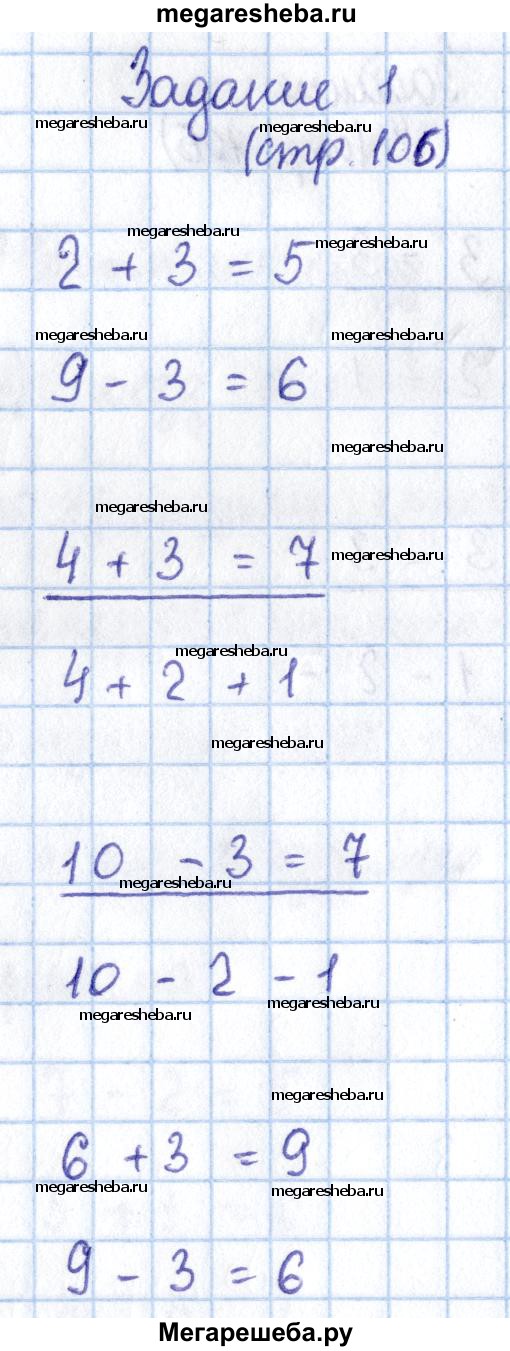 megaresheba.ru
Задание 1
megaresheba.ru megaresheba.ru
(стр. 106)
megaresheba.ru megaresheba.ru
2 + 3 = 5
megaresheba.ru megaresheba.ru
9 - 3 = 6
megaresheba.ru
megaresheba.ru
4 + 3 = 7 megaresheba.ru
megaresheba.ru
4 + 2 + 1
megaresheba.ru
10 - 3 = 7
megaresheba.ru
10 - 2 - 1
megaresheba.ru megaresheba.ru
megaresheba.ru
6 + 3 = 9
megaresheba.ru megaresheba.ru
9 - 3 = 6
Мегарешеба.ру